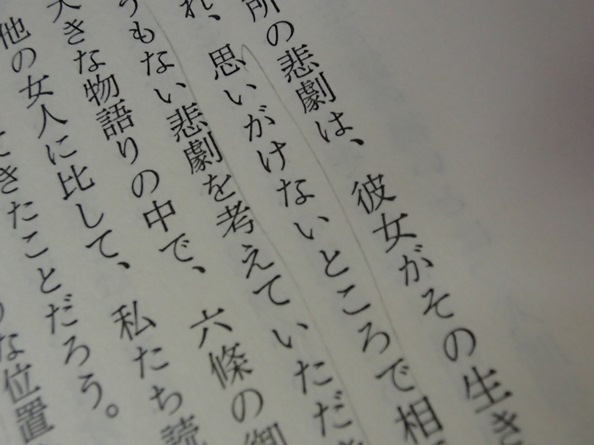 所の悲劇は、彼女がその生き
れ、思いがけないところで相
うもない悲劇を考えていただ
大きな物語りの中で、六條の御
他の女人に比して、私たち読
てきたことだろう。
な位置